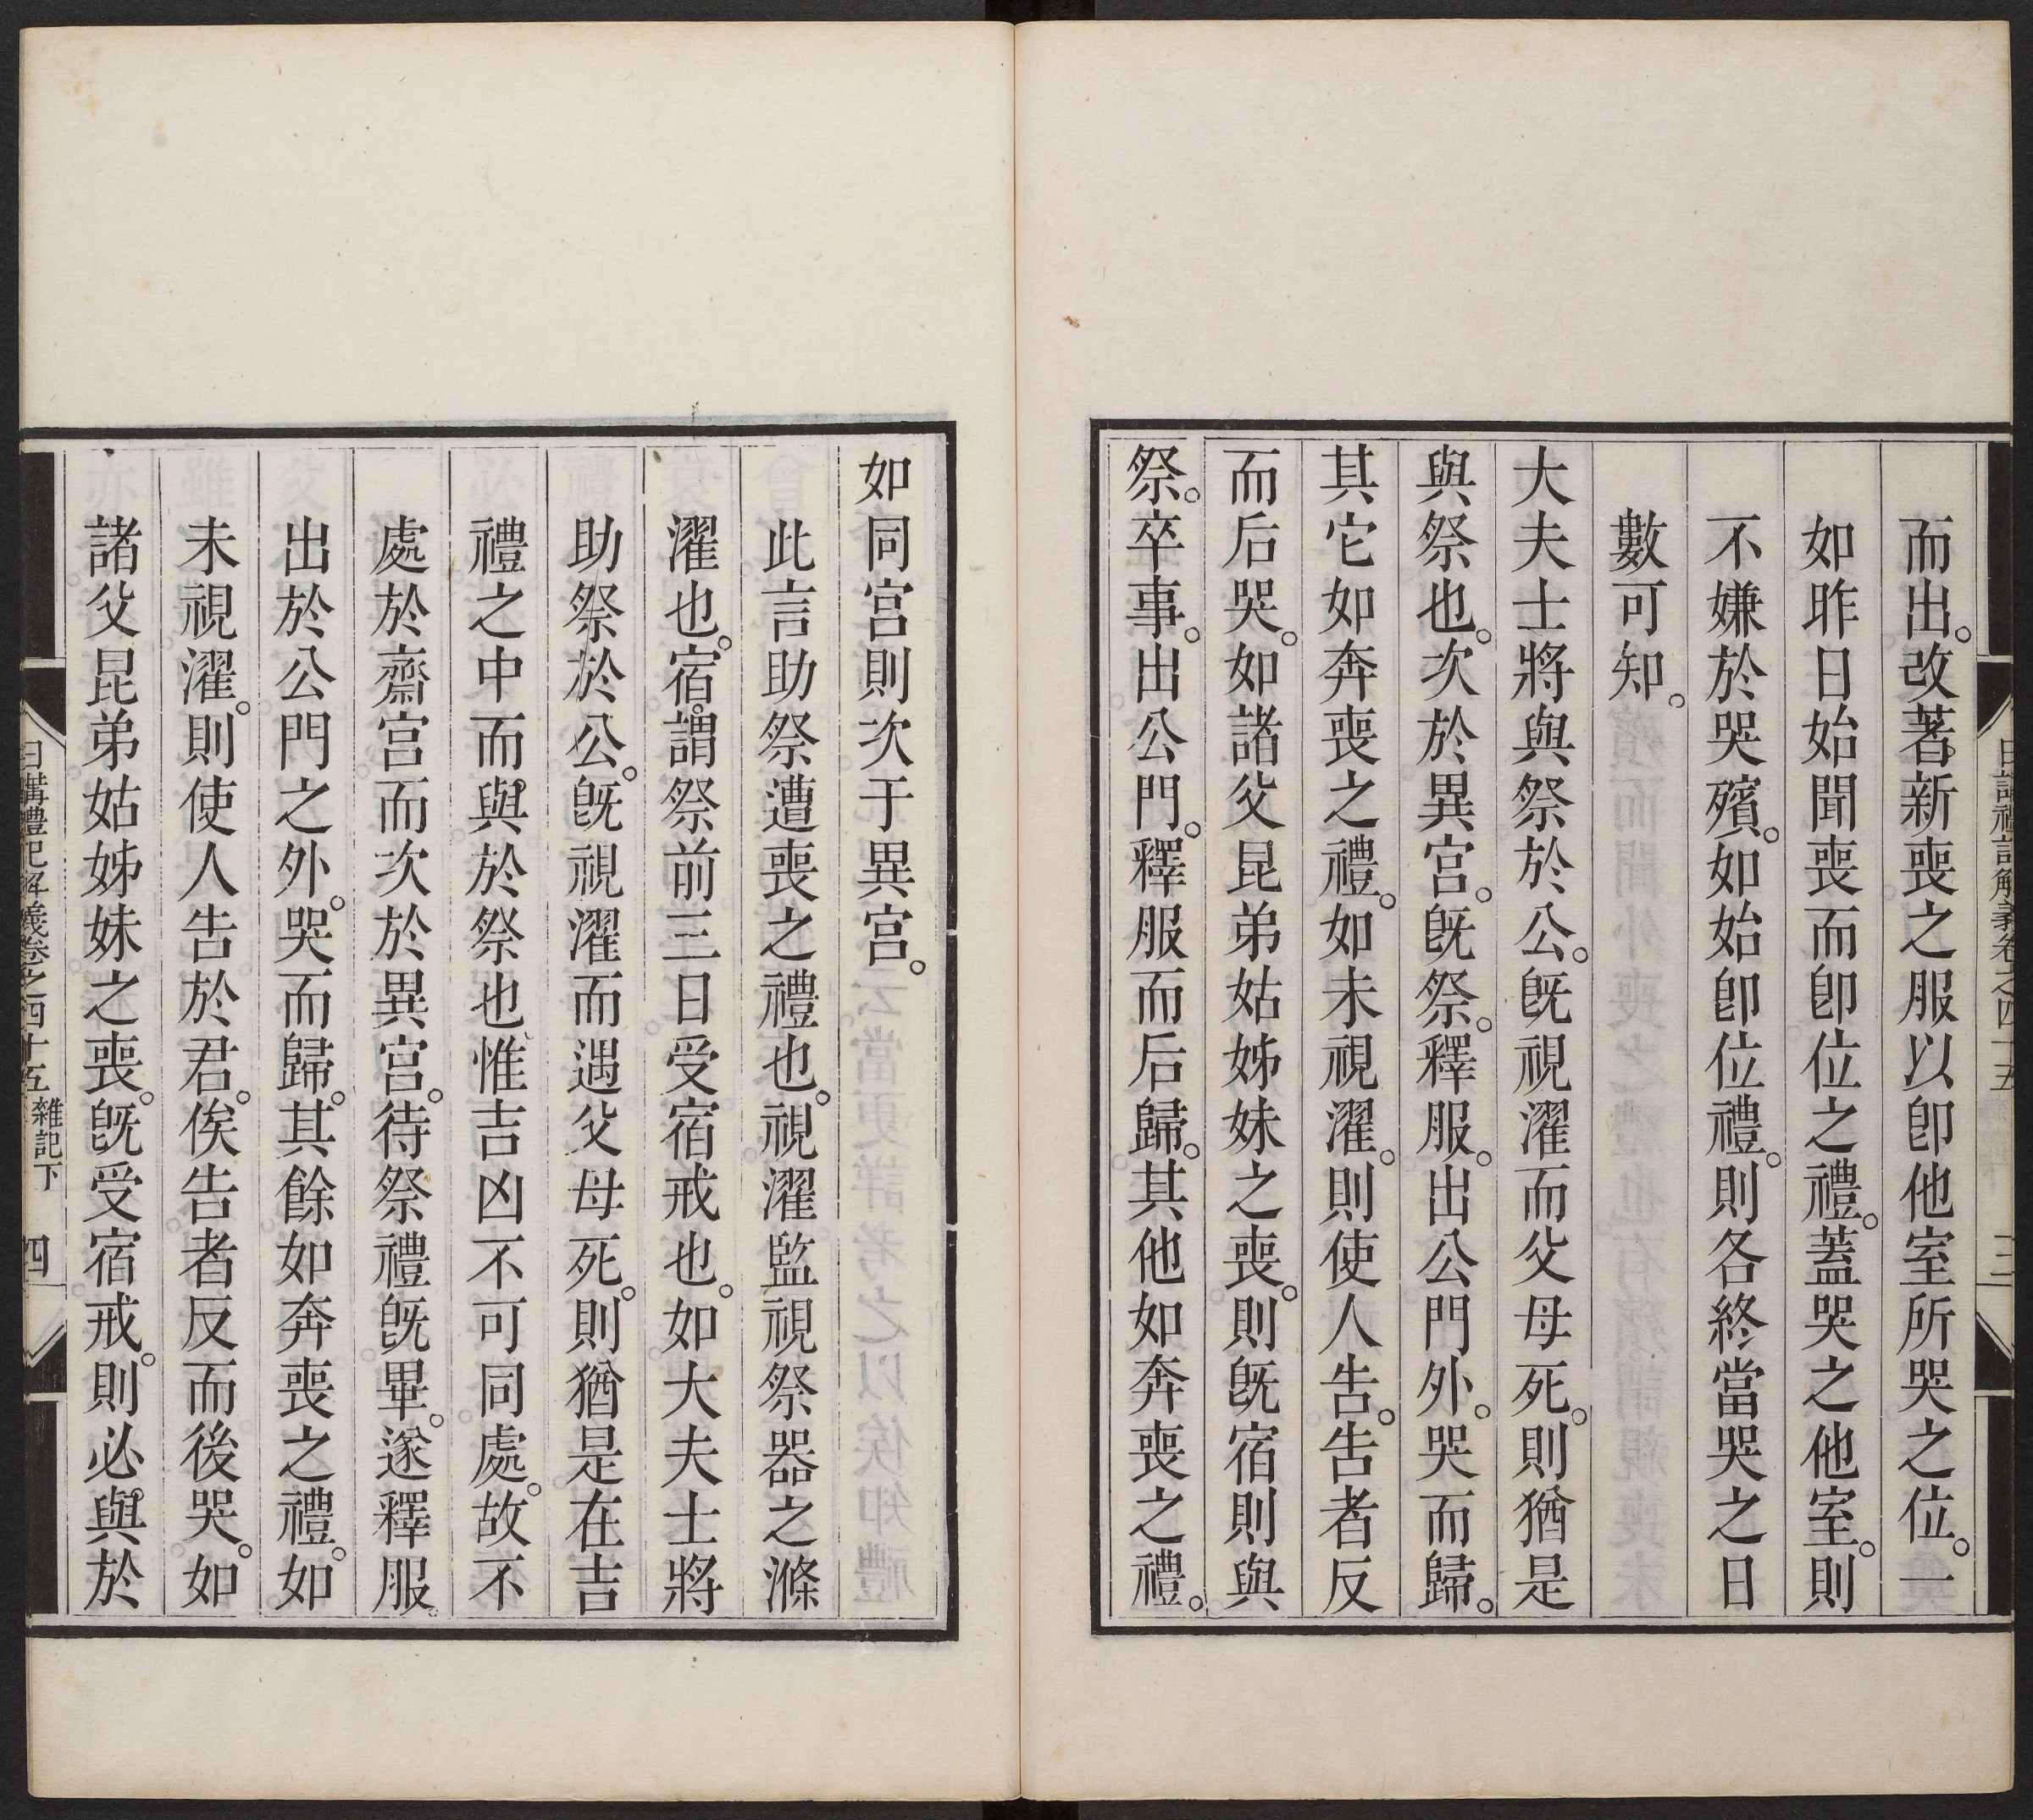 而出。改著新喪之服以卽他室所哭之位。一
如昨日始聞喪而卽位之禮。蓋哭之他室。則
不嫌於哭殯。如始卽位禮。則各終當哭之日
數可知。
大夫士將與祭於公。旣視濯而父母死。則猶是
與祭也。次於異宮。旣祭。釋服。出公門外。哭而歸。
其它如奔喪之禮。如未視濯。則使人告。告者反
而后哭。如諸父昆弟姑姊妹之喪。則旣宿則與
祭。卒事。出公門。釋服而后歸。其他如奔喪之禮。
如同宮則次于異宮。
此言助祭遭喪之禮也。視濯監視祭器之滌
濯也。宿。謂祭前三日受宿戒也。如大夫士將
助祭於公。旣視濯而遇父母死。則猶是在吉
禮之中而與於祭也、惟吉凶不可同處。故不
處於齋宮而次於異宮。待祭禮旣畢。遂釋服。
出於公門之外。哭而歸。其餘如奔喪之禮。如
未視濯。則使人告於君。俟告者反而後哭。如
諸父昆弟姑姊妹之喪。旣受宿戒。則必與於
日講禮記解義卷之四十五 雜記下 四